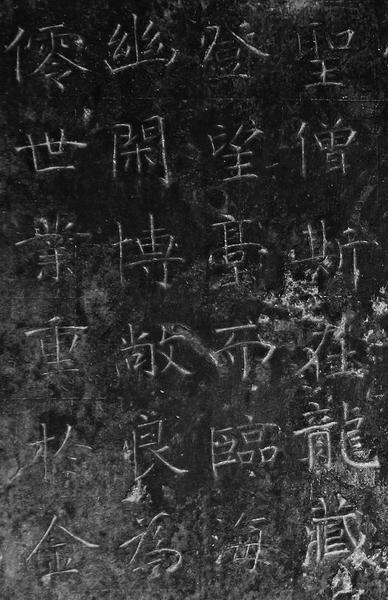 聖僧斯在龍藏
登望臺而臨海
幽閑博敞良為
僊世業重於金